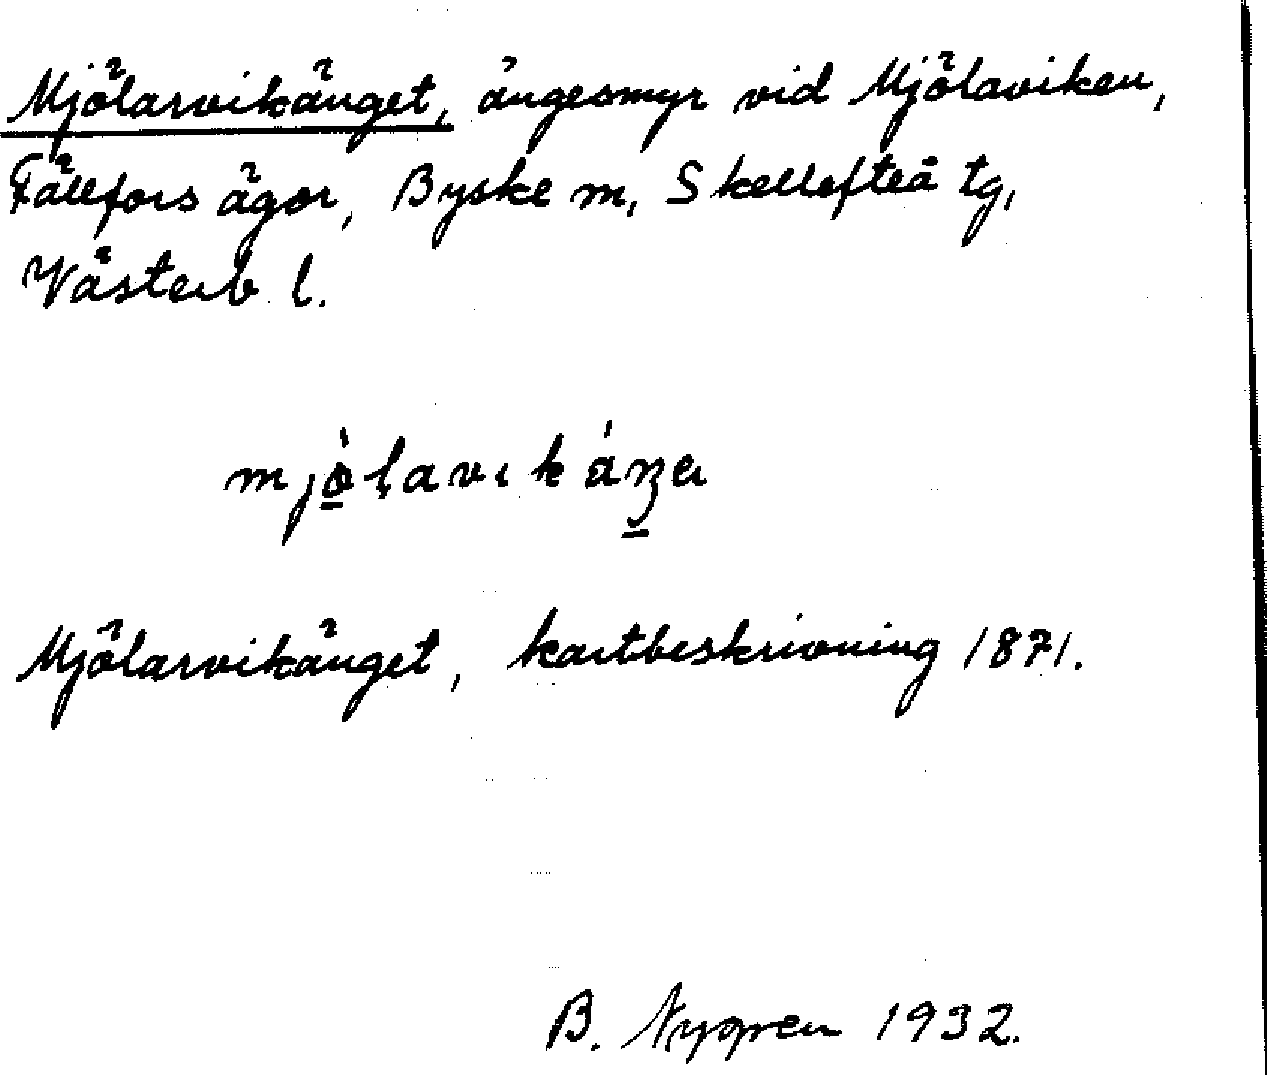 Mjölarvikänget, ängesmyr vid Mjölaviken,
Fällfors ägor, Byske sn, Skellefteå tg,
Västerb. l.
mjò̱ḷavikáŋ̱a
Mjölarvikänget, kartbeskrivning 1871.
B. Nygren 1932.